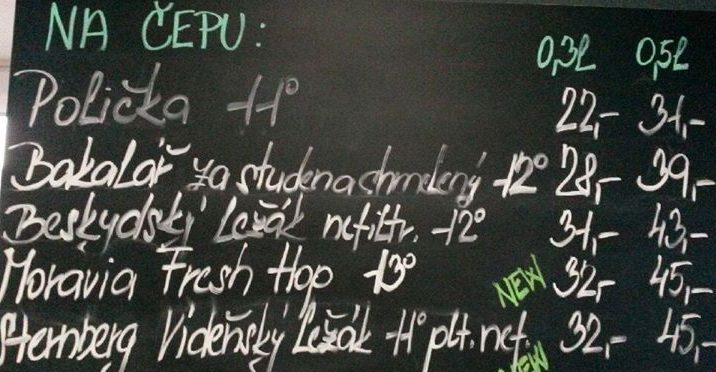 NA ČEPU: 0,3l 0,5l
Polička 11° 22,- 31,-
Bakalář za studena chmelený 12° 28,- 39,-
Beskydský ležák nefiltr. 12° 31,- 43,-
Moravia Fresh Hop 13° NEW 32,- 45,-
Sternberg Vídeňský ležák 11° plt. nef. 32,- 45,-
NEW